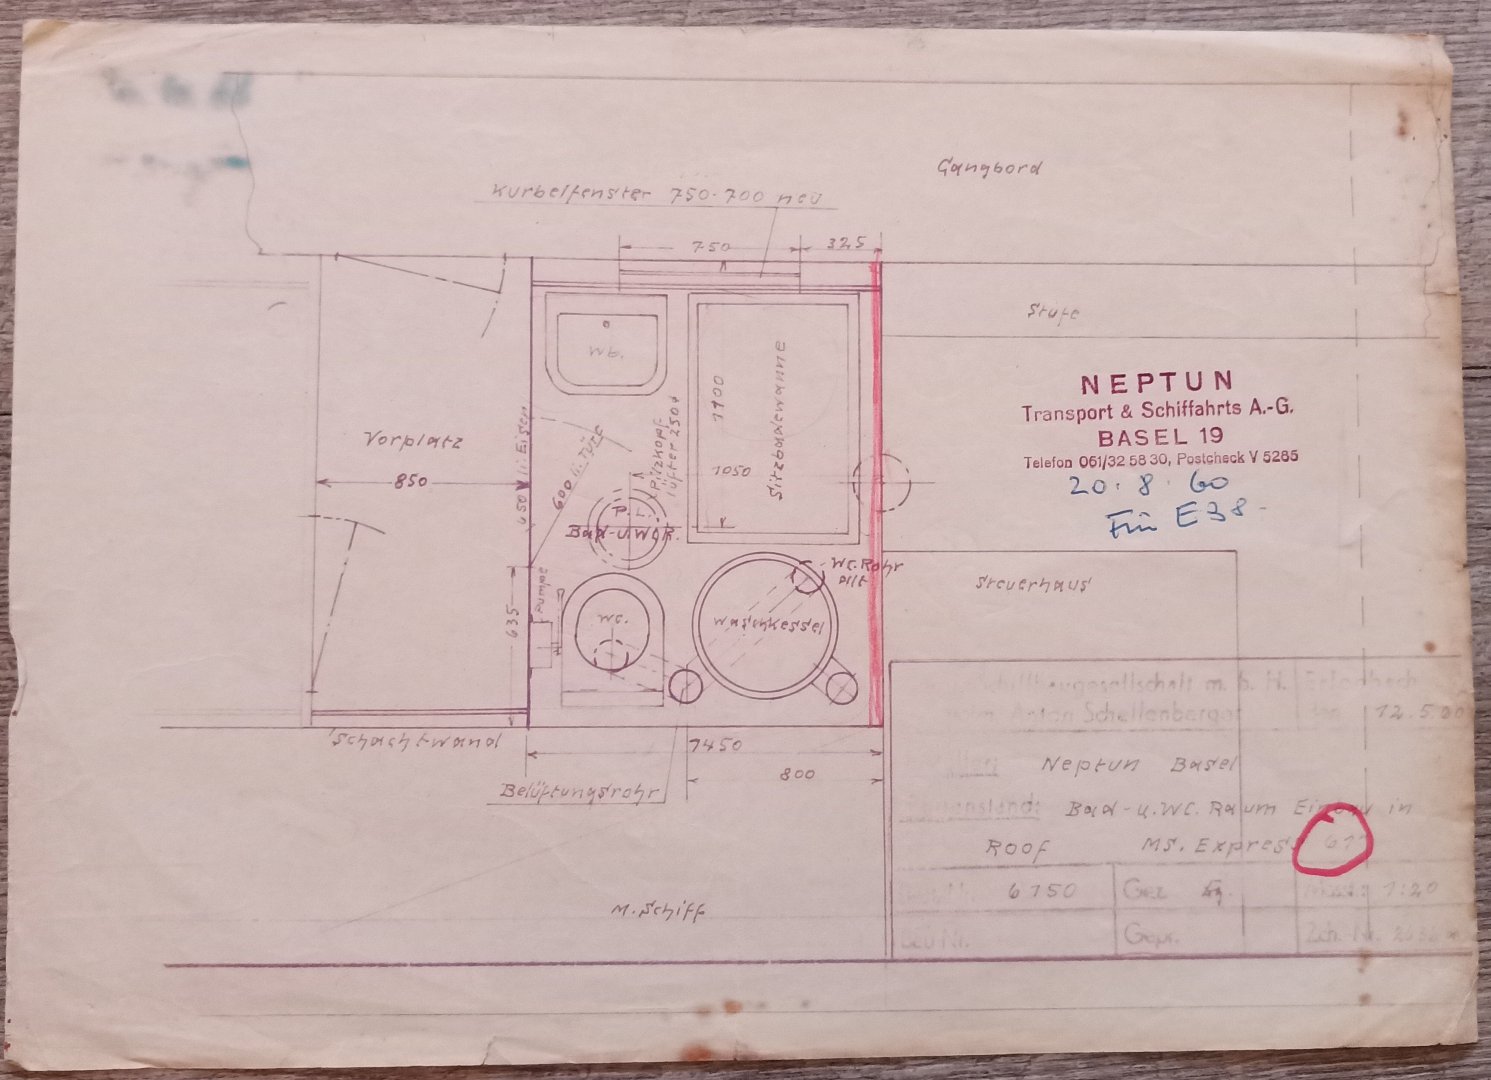 Gangbord
Kurbelfenster 750·700 neu
750
325
Stufe
Wb.
Sitzbadewanne
1100
1050
Vorplatz
850
650 li. Eisen
600 li. Türe
Pilzkopf-
lüfter 250
Bad-u.WC.R.
NEPTUN
Transport & Schiffahrts A.-G.
BASEL 19
Telefon 061/32 58 30, Postcheck V 5285
20.8.60
Für E38
WC.Rohr
alt
Steuerhaus
Pumpe
635
WC.
Waschkessel
Schachtwand
1450
800
Belüftungsrohr
M. Schiff
Schiffbaugesellschaft m. b. H. Erlenbach
Anton Schellenberger 12.5.60
Neptun Basel
Gegenstand: Bad-u.WC. Raum Einbau in
Roof MS. Express
6150 Gez. 1:20
Gepr. Zch.-Nr.